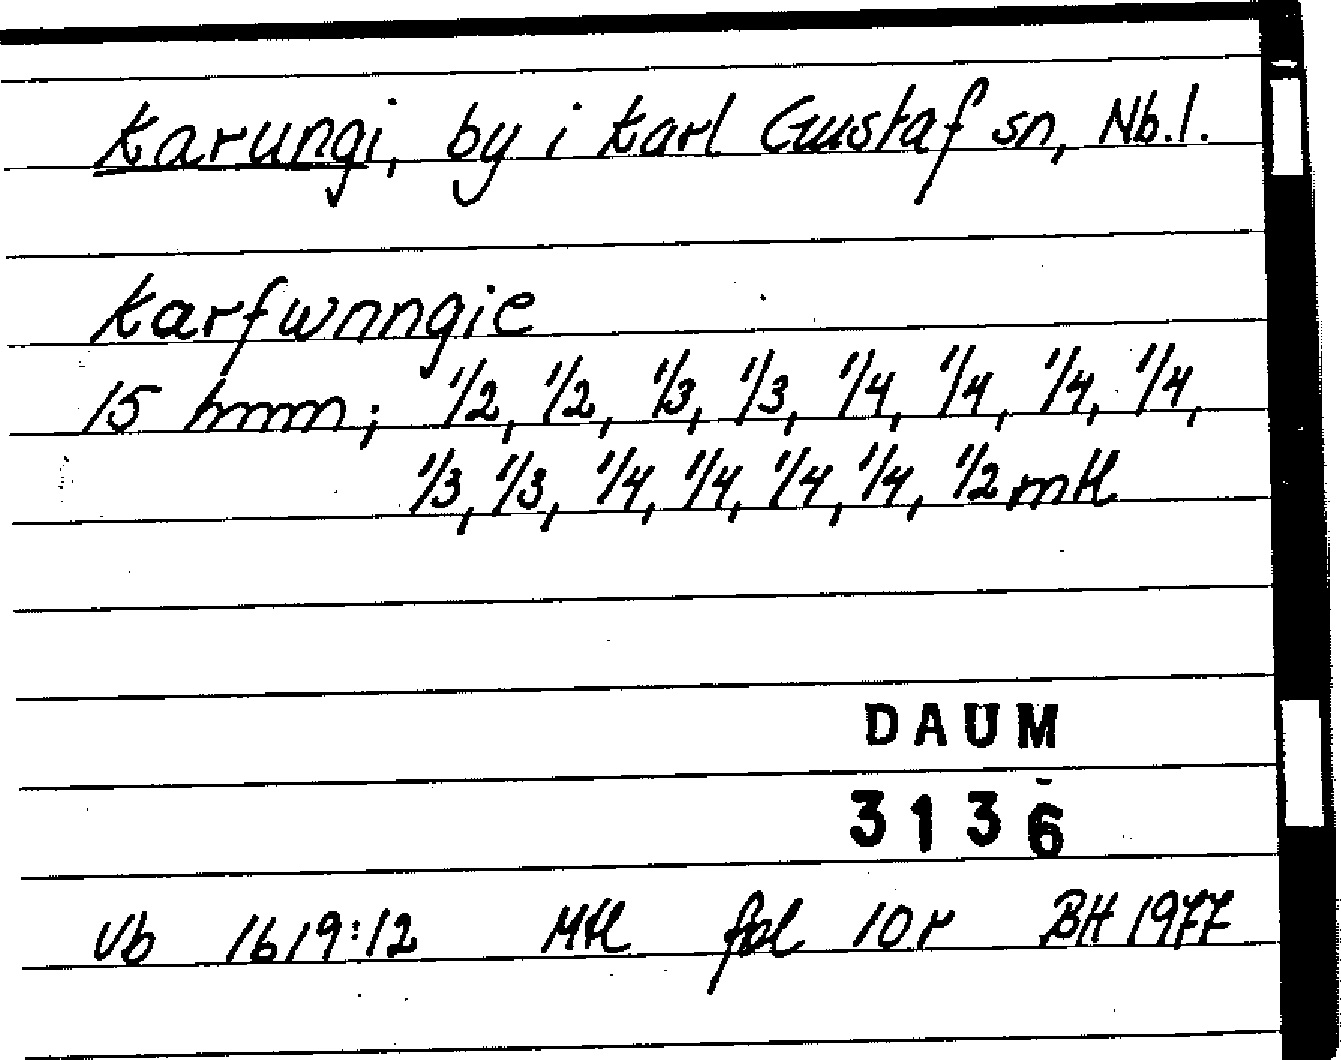 Karungi, by i Karl Gustaf sn, Nb.l.
Karfwnngie
15 hmm; 1/2, 1/2, 1/3, 1/3, 1/4, 1/4, 1/4, 1/4,
1/3, 1/3, 1/4, 1/4, 1/4, 1/4, 1/2 mtl
DAUM
3136
Vb 1619:12 Mtl fol 10r BH 1977